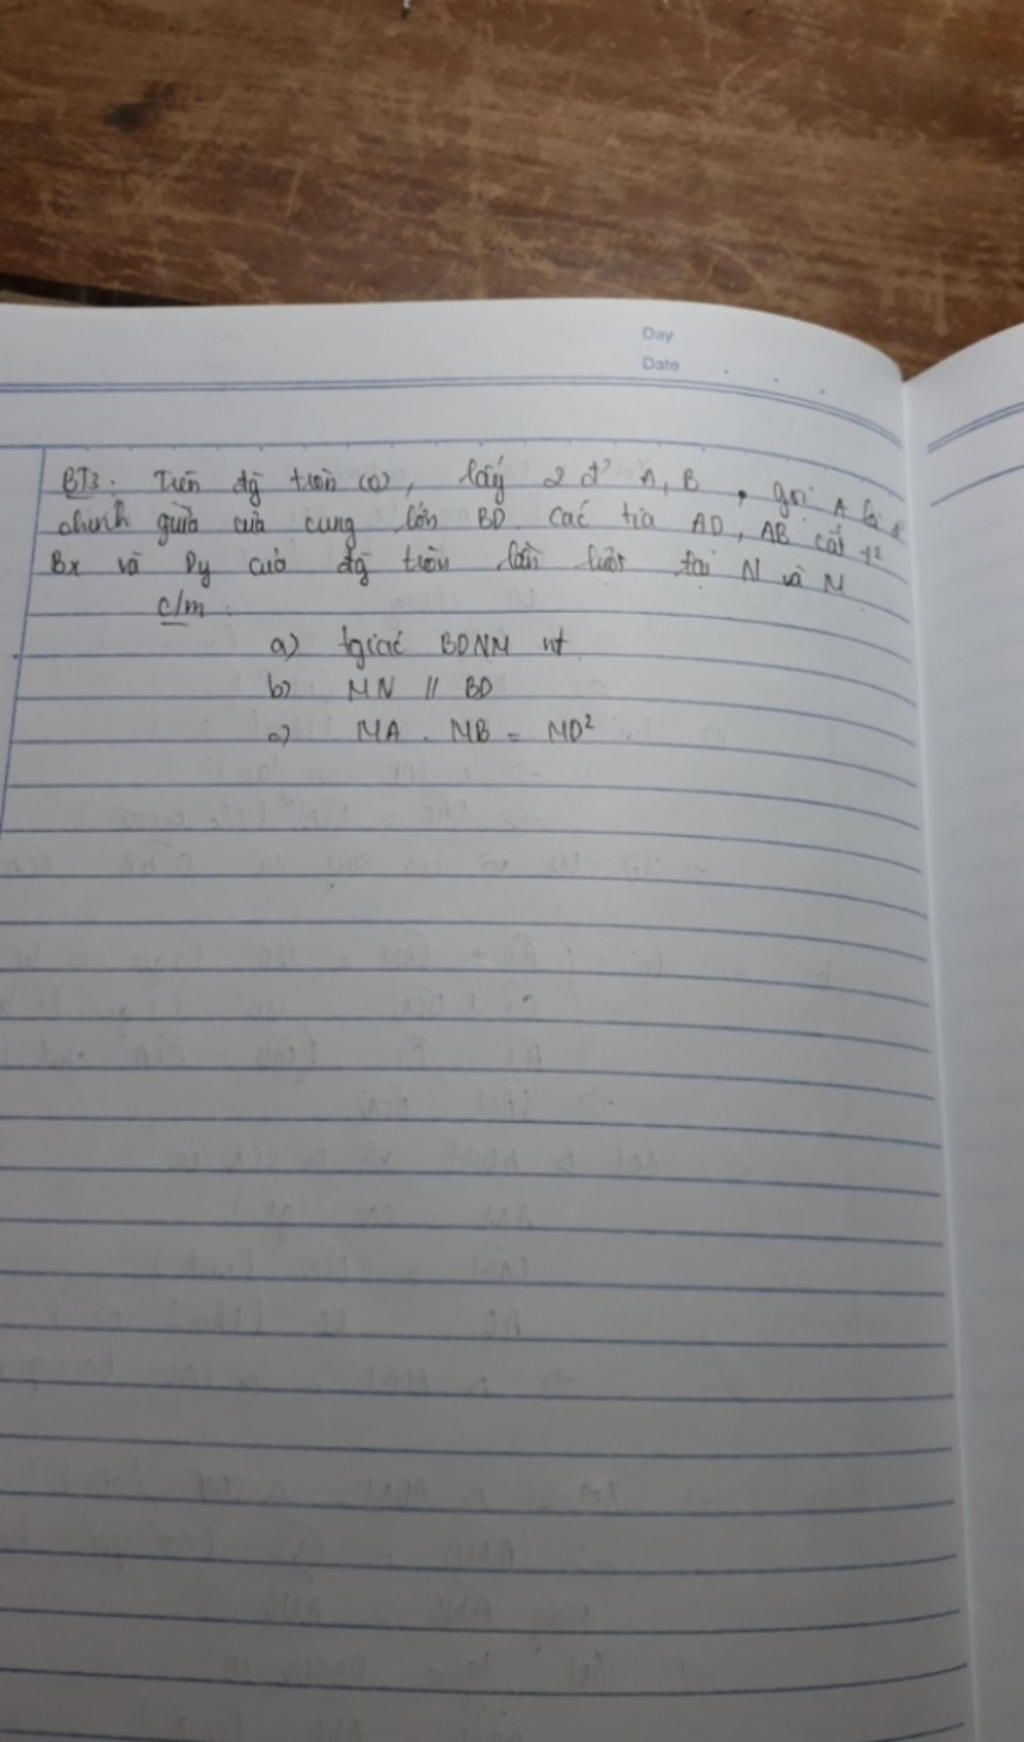 Day
Date
BT3: Trên đg tròn (O), lấy 2 đ' A, B, gọi A là đ'
chính giữa của cung lớn BD. Các tia AD, AB cắt t²
Bx và Dy của đg tròn lần lượt tại N và M
c/m:
a) tgiác BDNM nt
b) MN // BD
c) MA . MB = MD²